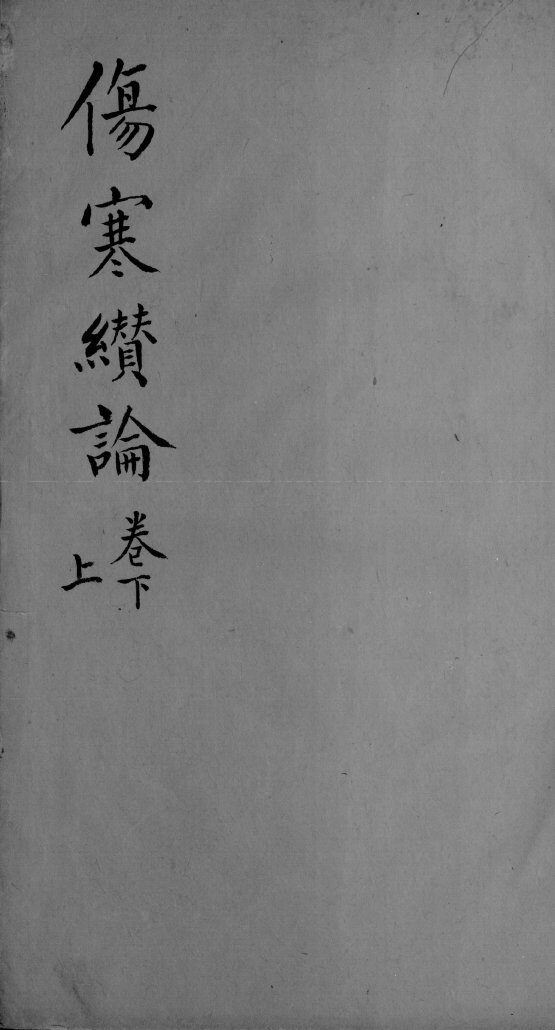 傷寒纘論
卷下
上